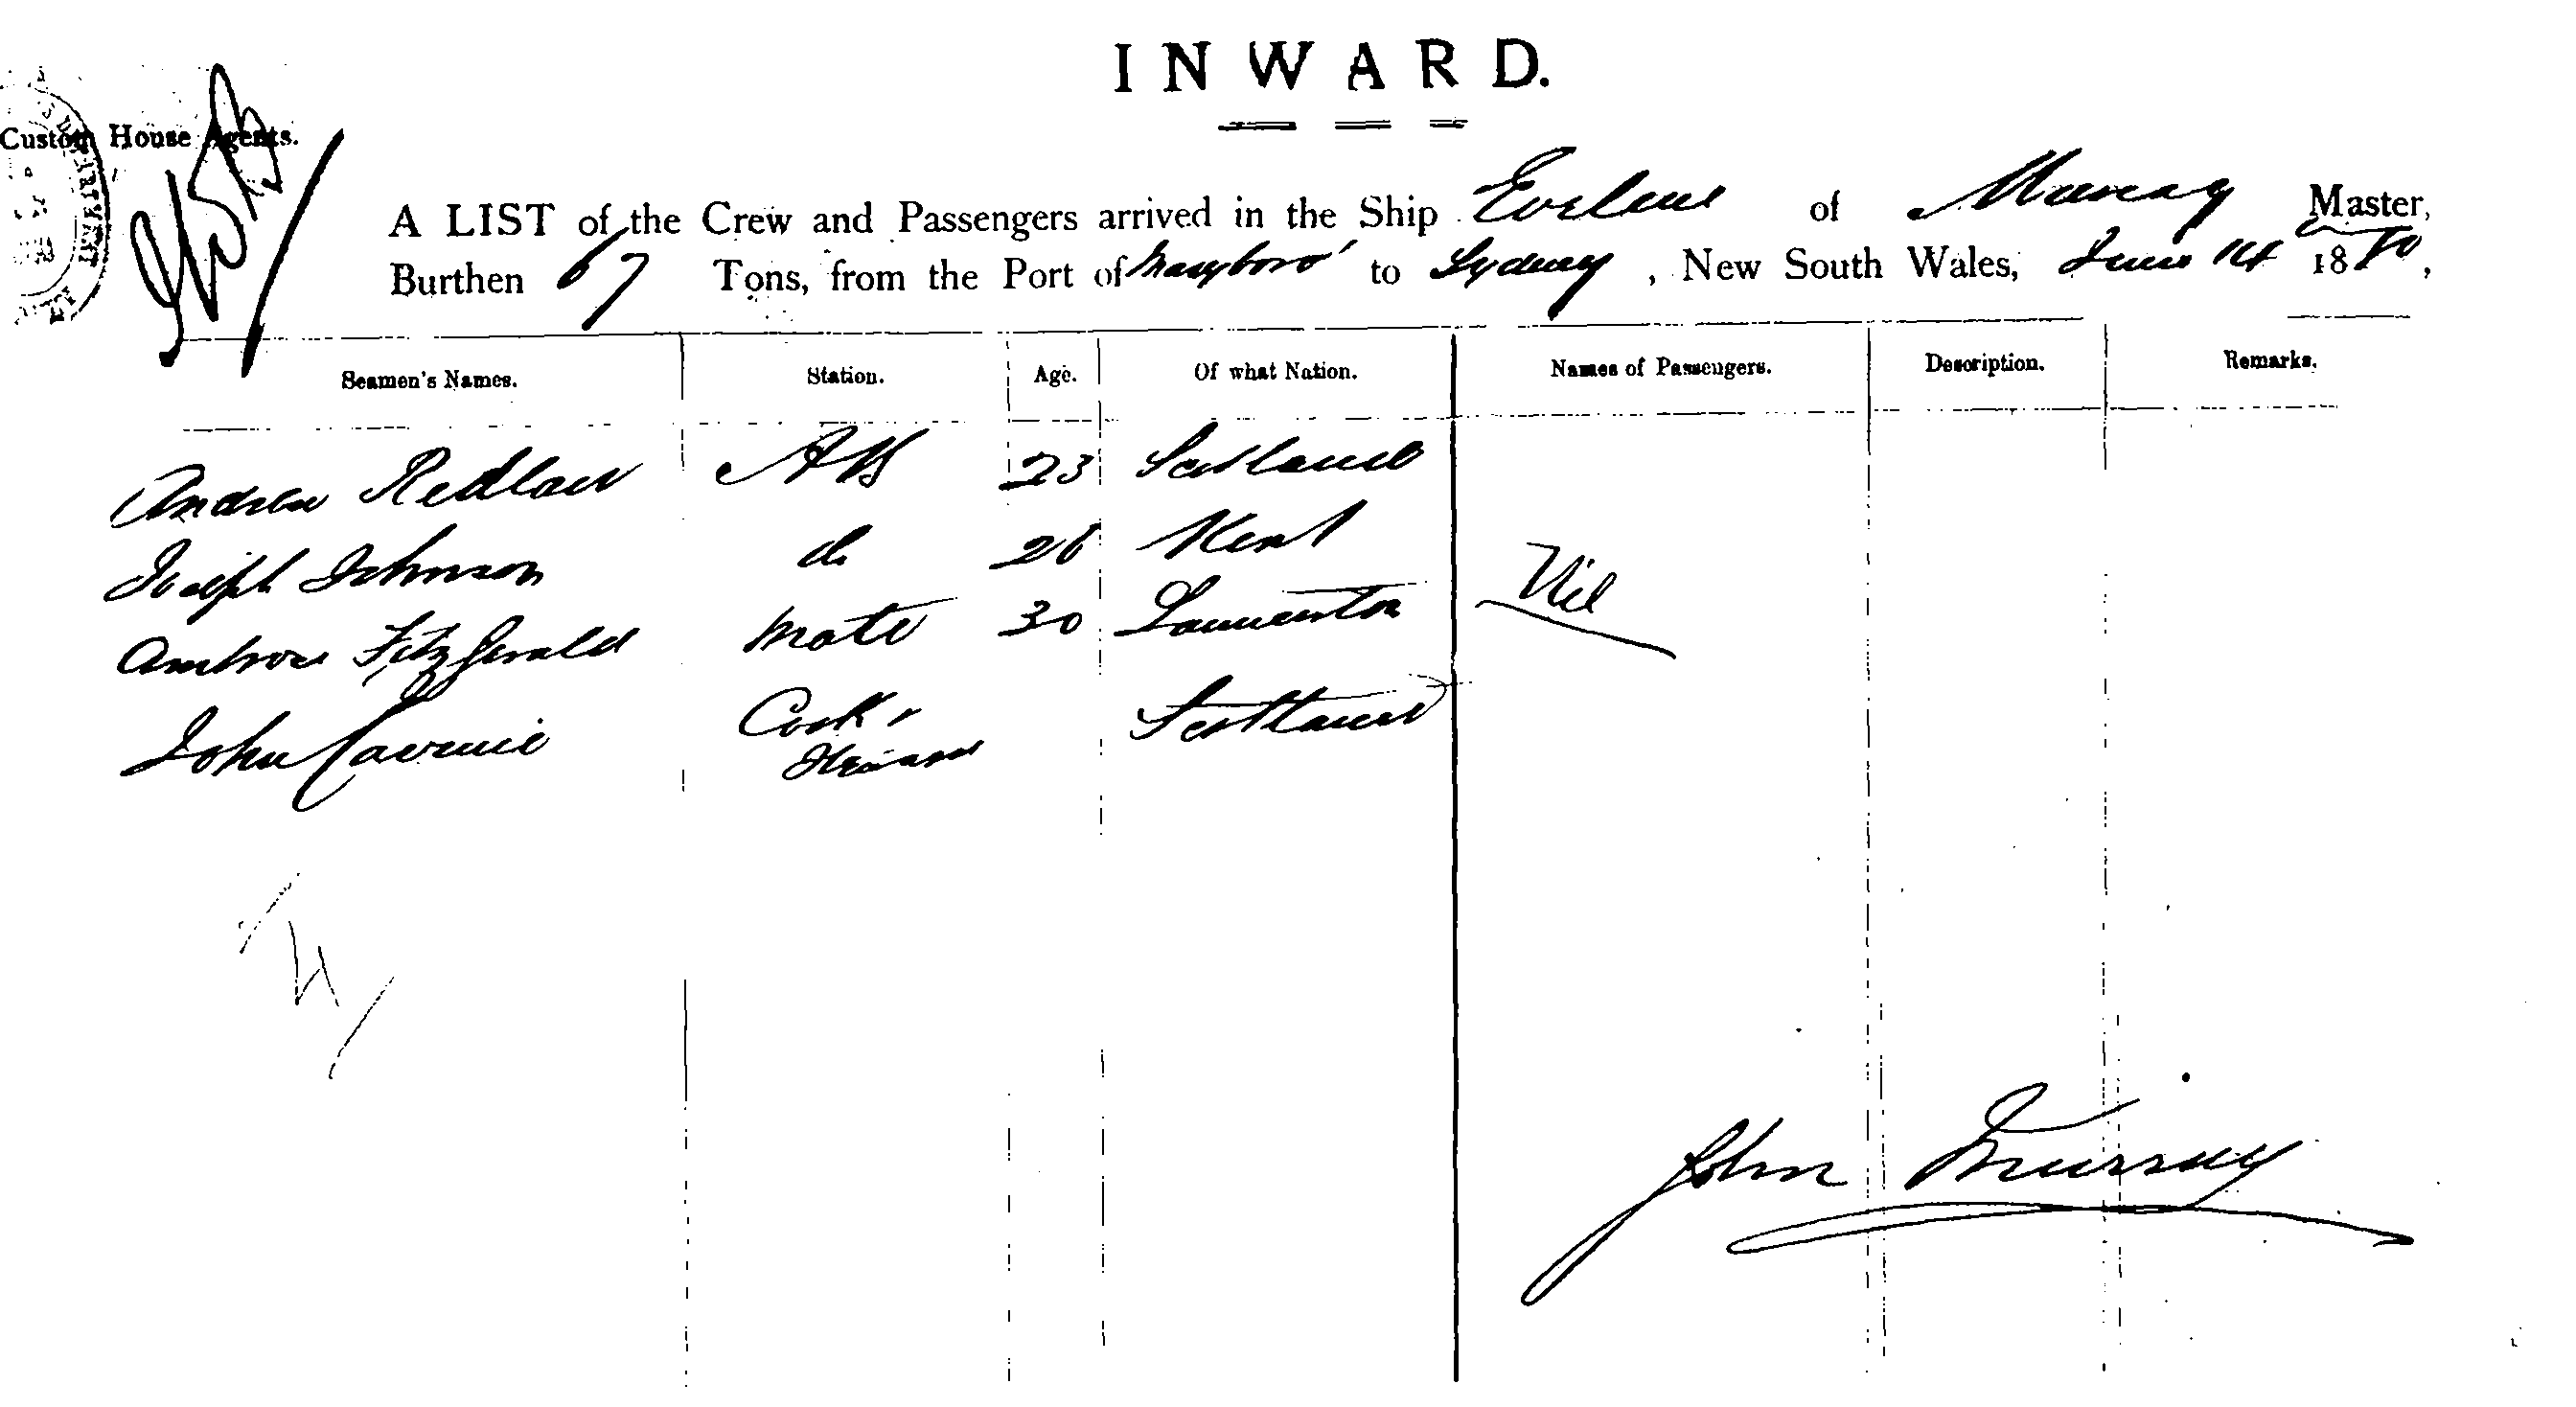 INWARD.
Custom House Agents.
A LIST of the Crew and Passengers arrived in the Ship Evelene of Murray Master,
Burthen 67 Tons, from the Port of Maryboro' to Sydney, New South Wales, June 14 1880,
Seamen's Names. Station. Age. Of what Nation. Names of Passengers. Description. Remarks.
Andrew Redlaw AB 23 Scotland
Joseph Johnson do 26 Kent
Nil
Ambrose FitzGerald Mate 30 Launceston
John Cook & Scotland
Steward
John Murray